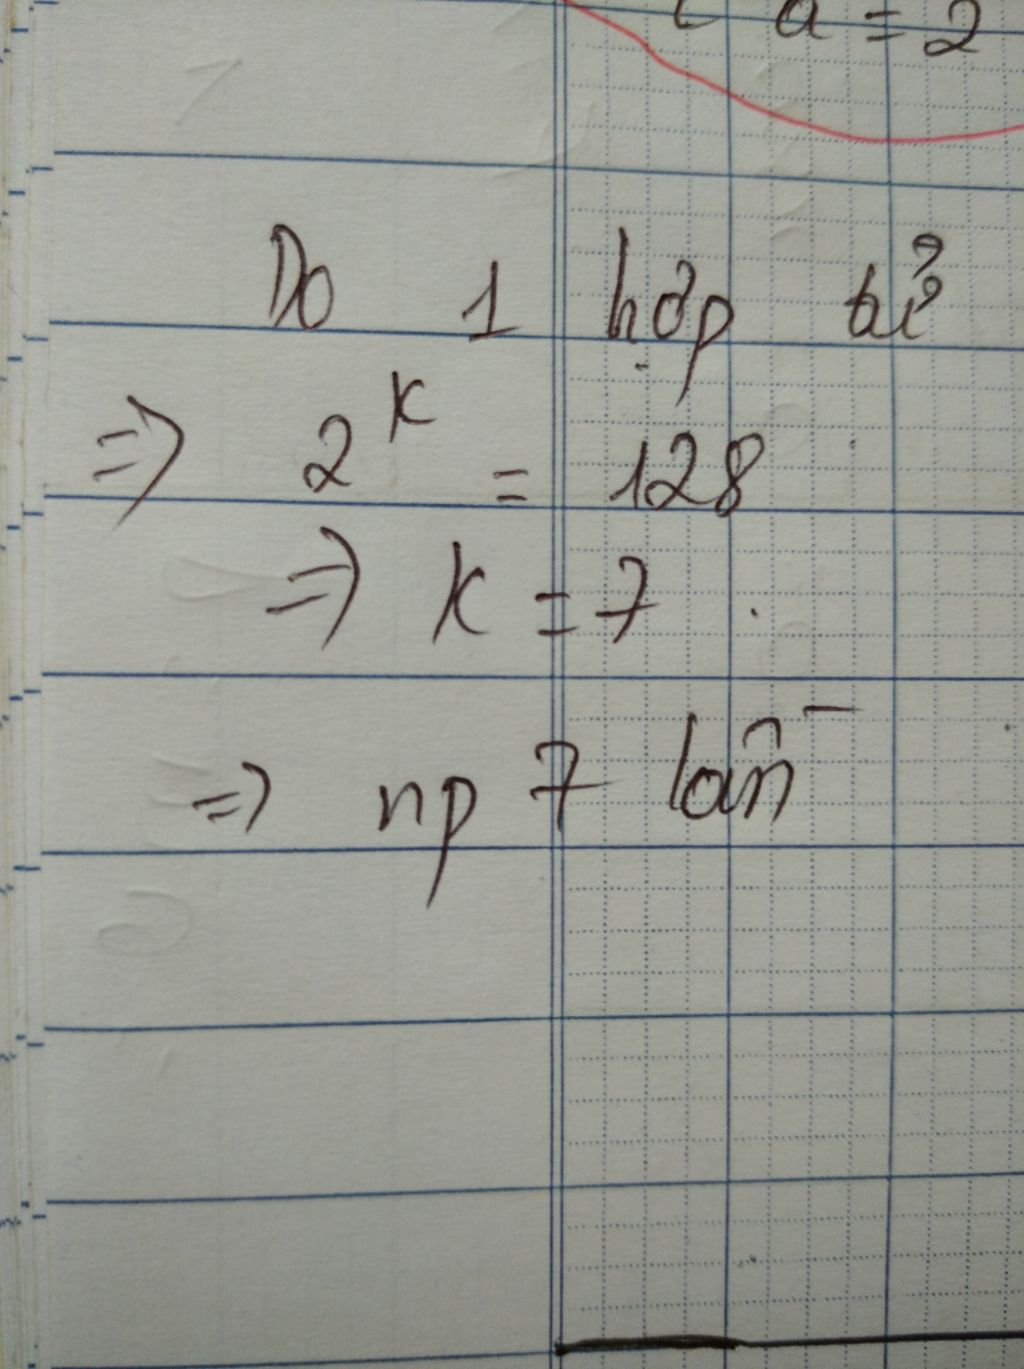 a = 2
Do 1 hợp tử
=> 2^k = 128
=> k = 7
=> np 7 lần